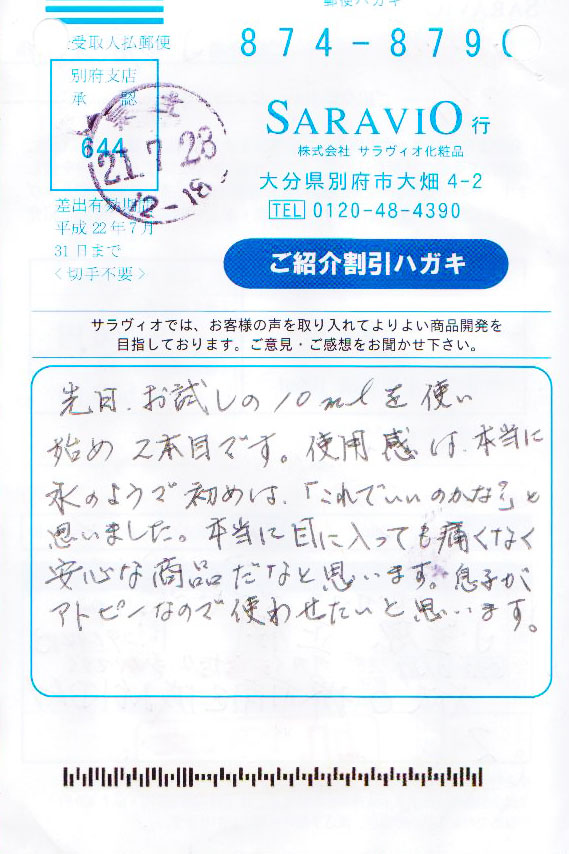 郵便ハガキ
受取人払郵便
874-8790
別府支店
承認
644
21.7.23
12-18
SARAVIO 行
株式会社 サラヴィオ化粧品
大分県別府市大畑4-2
TEL 0120-48-4390
差出有効期間
平成22年7月
31日まで
<切手不要>
ご紹介割引ハガキ
サラヴィオでは、お客様の声を取り入れてよりよい商品開発を
目指しております。ご意見・ご感想をお聞かせ下さい。
先日、お試しの10mlを使い
始め2本目です。使用感は、本当に
水のようで初めは、「これでいいのかな?」と
思いました。本当に目に入っても痛くなく
安心な商品だなと思います。息子が
アトピーなので使わせたいと思います。